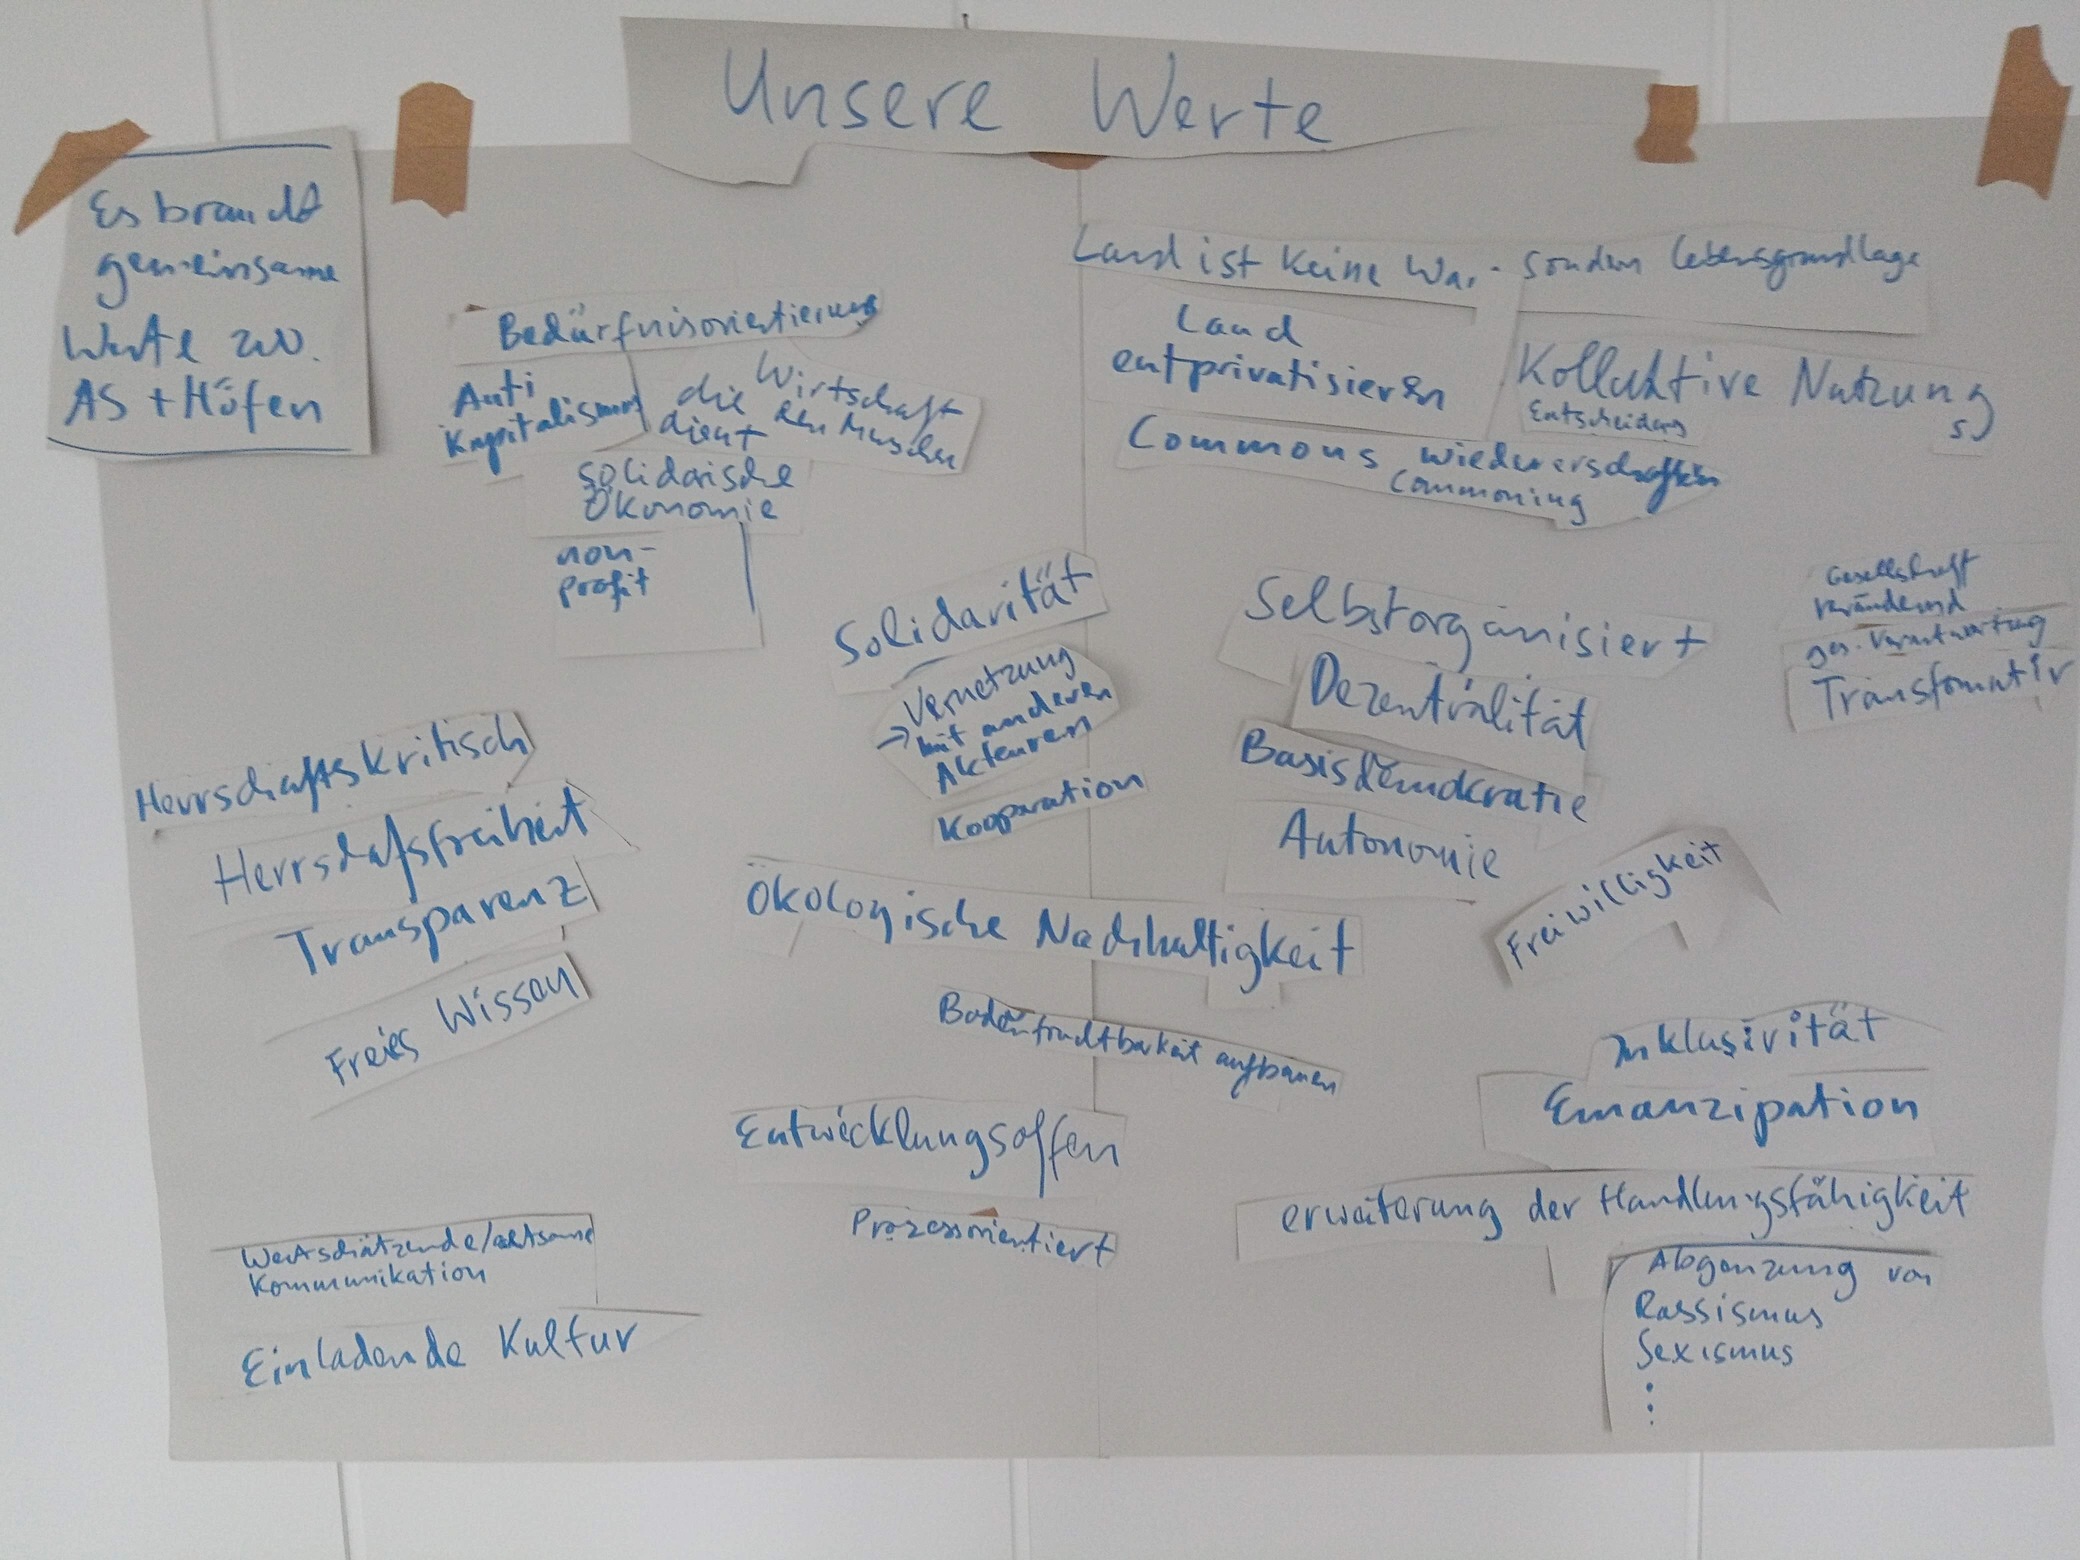 Unsere Werte
Es braucht
gemeinsame
Werte zw.
AS + Höfen
Bedürfnisorientierung
Anti
Kapitalismus
die Wirtschaft
dient den Menschen
solidarische
Ökonomie
non-
profit
Land ist keine Wa. - sondern Lebensgrundlage
Land
entprivatisieren
Kollektive Nutzung
Entscheidung
Commons wiedererschaffen
Commoning
Solidarität
Vernetzung
→ mit anderen
Akteuren
Kooperation
Selbstorganisiert
Dezentralität
Basisdemokratie
Autonomie
Gesellschaft
verändernd
ges. Verantwortung
Transfomativ
Freiwilligkeit
Herrschaftskritisch
Herrschafsfreiheit
Transparenz
Freies Wissen
Ökologische Nachhaltigkeit
Bodenfruchtbarkeit aufbauen
Entwicklungsoffen
Prozessorientiert
Inklusivität
Emanzipation
erweiterung der Handlungsfähigkeit
Abgenzung von
Rassismus
Sexismus
⋮
Wertschätzende/achtsame
Kommunikation
Einladende Kultur